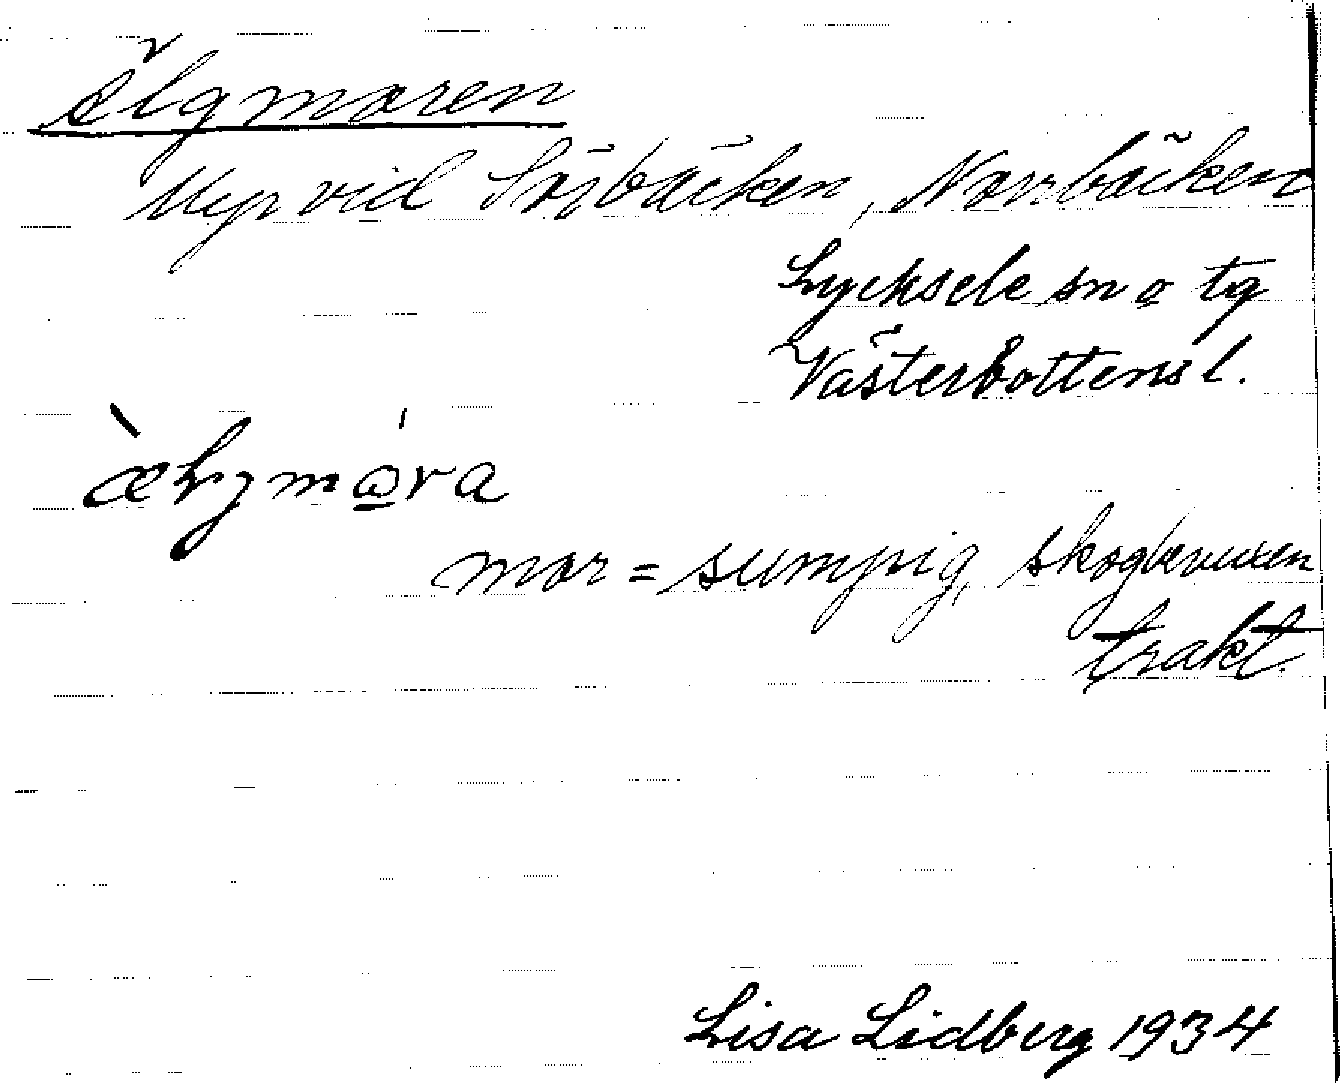 Älgmoren
Myr vid Söjbäcken, Norrbäcken
Lycksele sn o tg
Västerbottens l.
mor = sumpig, skogbevuxen
trakt.
Lisa Lidberg 1934